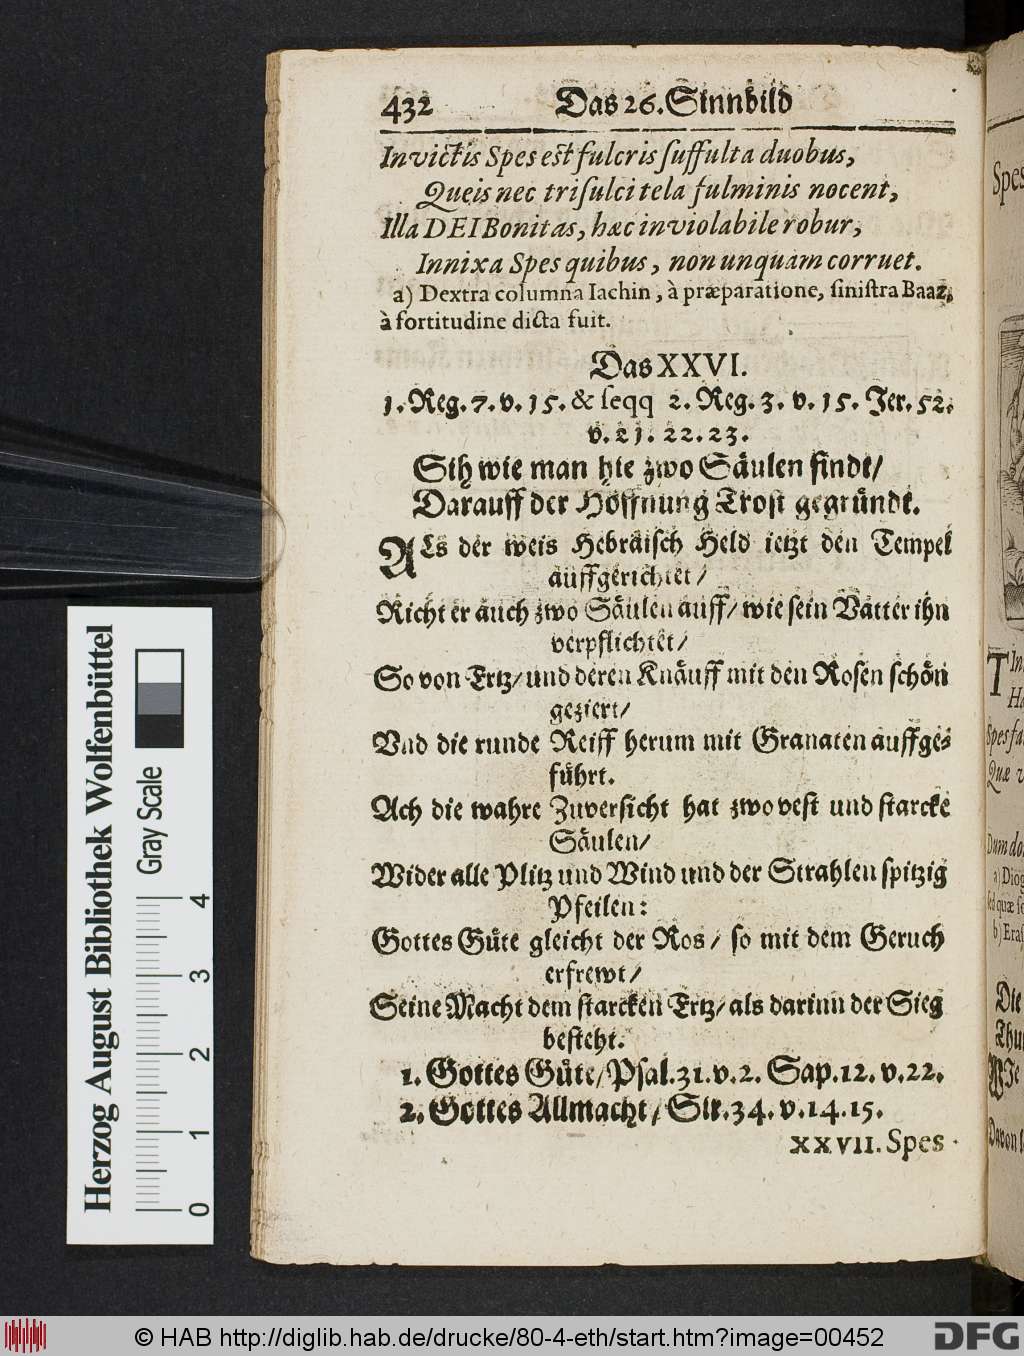 432 Das 26. Sinnbild
Invictis Spes est fulcris ſuffulta duobus,
Queis nec triſulci tela fulminis nocent,
Illa DEI Bonitas, hæc inviolabile robur,
Innixa Spes quibus, non unquam corruet.
a) Dextra columna Iachin, à præparatione, ſiniſtra Baaz,
à fortitudine dicta fuit.
Das XXVI.
1. Reg. 7. v. 15. & ſeqq 2. Reg. 3. v. 15. Jer. 52.
v. 21. 22. 23.
Sih wie man hie zwo Säulen findt/
Darauff der Hoffnung Troſt gegründt.
ALs der weis Hebräiſch Held ietzt den Tempel
auffgerichtet/
Richt er auch zwo Säulen auff/ wie ſein Vatter ihn
verpflichtet/
So von Ertz/ und deren Knäuff mit den Roſen ſchön
geziert/
Vnd die runde Reiff herum mit Granaten auffge⸗
führt.
Ach die wahre Zuverſicht hat zwo veſt und ſtarcke
Säulen/
Wider alle Plitz und Wind und der Strahlen ſpitzig
Pfeilen:
Gottes Güte gleicht der Ros/ ſo mit dem Geruch
erfrewt/
Seine Macht dem ſtarcken Ertz/ als darinn der Sieg
beſteht.
1. Gottes Güte/ Pſal. 31. v. 2. Sap. 12. v. 22.
2. Gottes Allmacht/ Sir. 34. v. 14. 15.
XXVII. Spes
Spes
Herzog August Bibliothek Wolfenbüttel
Gray Scale
0 1 2 3 4
© HAB http://diglib.hab.de/drucke/80-4-eth/start.htm?image=00452
DFG